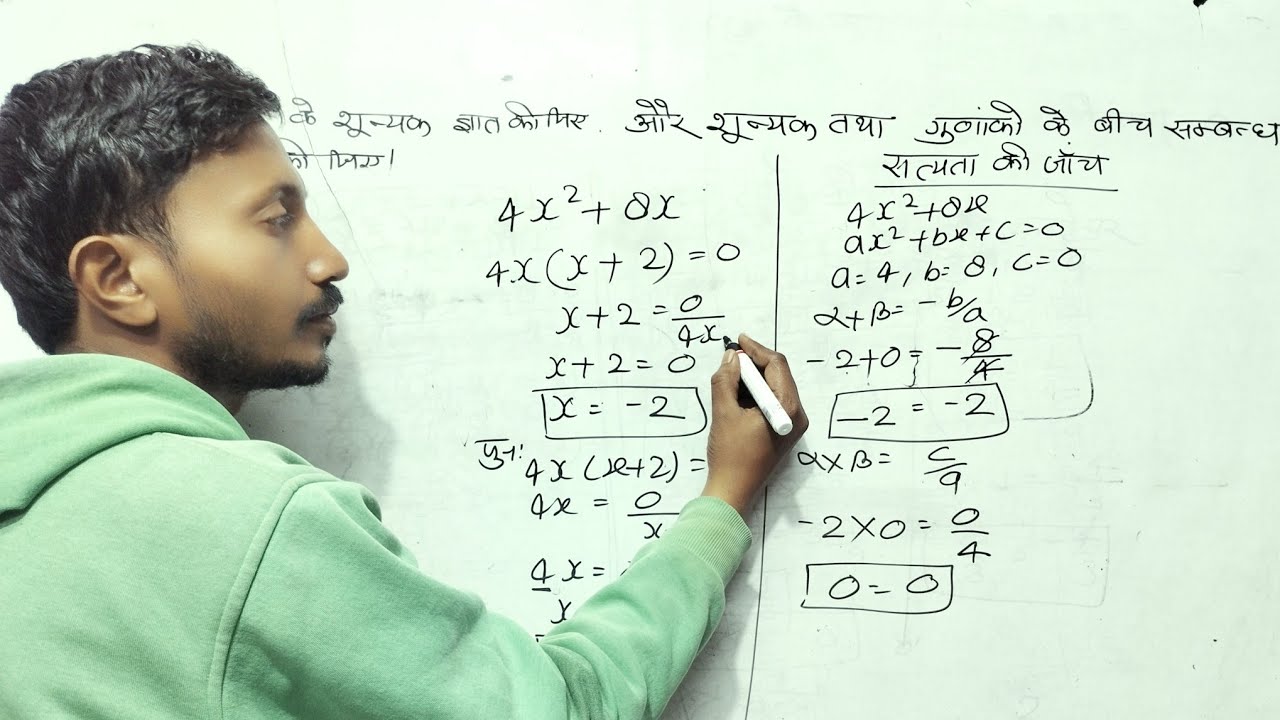 के शून्यक ज्ञात कीजिए. और शून्यक तथा गुणांको के बीच सम्बन्ध
कीजिए।
4x² + 8x
4x(x + 2) = 0
x + 2 = 0/4x
x + 2 = 0
x = -2
पुनः
4x (x+2) =
4x = 0/x
4x =
x
सत्यता की जाँच
4x² + 8x
ax² + bx + c = 0
a = 4, b = 8, c = 0
α + β = -b/a
-2 + 0 = -8/4
-2 = -2
α × β = c/a
-2 × 0 = 0/4
0 = 0